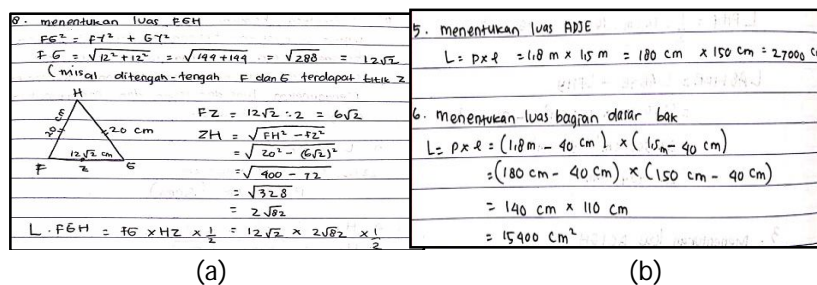 8. menentukan luas FGH
FG² = FY² + GY²
FG = √12² + 12² = √144 + 144 = √288 = 12√2
(misal ditengah-tengah F dan G terdapat titik Z
H
20 cm
20 cm
12√2 cm
F Z G
FZ = 12√2 : 2 = 6√2
ZH = √FH² - FZ²
= √20² - (6√2)²
= √400 - 72
= √328
= 2√82
L. FGH = FG × HZ × 1/2 = 12√2 × 2√82 × 1/2
(a)
5. menentukan luas ADJE
L = p × l = 1,8 m × 1,5 m = 180 cm × 150 cm = 27000 c
6. menentukan luas bagian dasar bak
L = p × l = (1,8 m - 40 cm) × (1,5 m - 40 cm)
= (180 cm - 40 cm) × (150 cm - 40 cm)
= 140 cm × 110 cm
= 15400 cm²
(b)